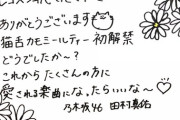 ありがとうございます
猫舌カモミールティー初解禁
どうでしたか~?
これからたくさんの方に
愛される楽曲になったらいいな~♡
乃木坂46 田村真佑